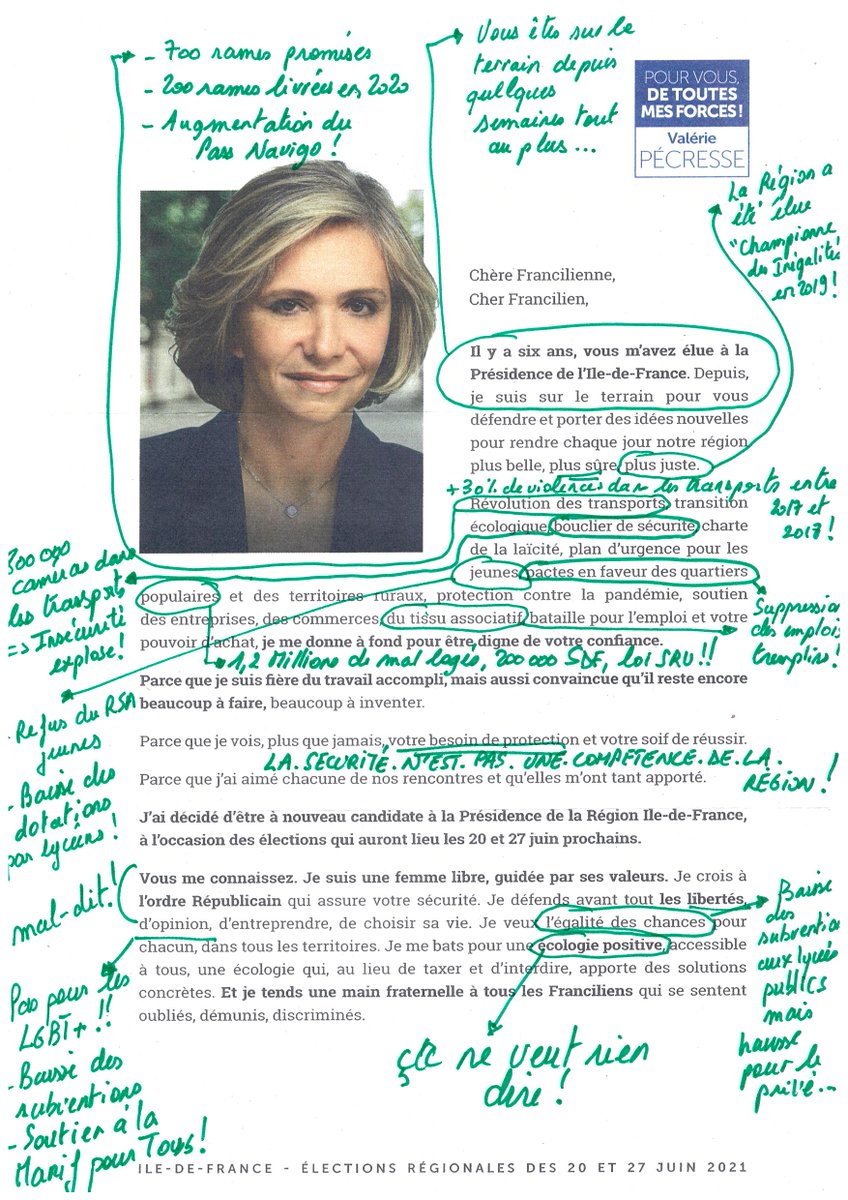 - 700 rames promises
- 200 rames livrées en 2020
- Augmentation du
Pass Navigo !
Vous êtes sur le
terrain depuis
quelques
semaines tout
au plus...
POUR VOUS,
DE TOUTES
MES FORCES !
Valérie
PÉCRESSE
La Région a
été élue
"Championne
des Inégalités
en 2019 !
Chère Francilienne,
Cher Francilien,
Il y a six ans, vous m'avez élue à la
Présidence de l'Ile-de-France. Depuis,
je suis sur le terrain pour vous
défendre et porter des idées nouvelles
pour rendre chaque jour notre région
plus belle, plus sûre, plus juste.
+30% de violences dans les transports entre
2017 et
2017 !
Révolution des transports, transition
écologique, bouclier de sécurité, charte
de la laïcité, plan d'urgence pour les
jeunes, pactes en faveur des quartiers
populaires et des territoires ruraux, protection contre la pandémie, soutien
des entreprises, des commerces, du tissu associatif, bataille pour l'emploi et votre
pouvoir d'achat, je me donne à fond pour être digne de votre confiance.
300 000
caméras dans
les transports
=> Insécurité
explose !
Suppression
des emplois
tremplins !
1,2 Millions de mal logés, 200 000 SDF, loi SRU !!
Parce que je suis fière du travail accompli, mais aussi convaincue qu'il reste encore
beaucoup à faire, beaucoup à inventer.
- Refus du RSA
jeunes
- Baisse des
dotations
par lycéens !
Parce que je vois, plus que jamais, votre besoin de protection et votre soif de réussir.
LA SÉCURITÉ N'EST PAS UNE COMPÉTENCE DE LA
RÉGION !
Parce que j'ai aimé chacune de nos rencontres et qu'elles m'ont tant apporté.
J'ai décidé d'être à nouveau candidate à la Présidence de la Région Ile-de-France,
à l'occasion des élections qui auront lieu les 20 et 27 juin prochains.
mal-dit !
Vous me connaissez. Je suis une femme libre, guidée par ses valeurs. Je crois à
l'ordre Républicain qui assure votre sécurité. Je défends avant tout les libertés,
d'opinion, d'entreprendre, de choisir sa vie. Je veux l'égalité des chances pour
chacun, dans tous les territoires. Je me bats pour une écologie positive, accessible
à tous, une écologie qui, au lieu de taxer et d'interdire, apporte des solutions
concrètes. Et je tends une main fraternelle à tous les Franciliens qui se sentent
oubliés, démunis, discriminés.
Baisse
des
subventions
aux lycées
publics
mais
hausse
pour le
privé...
Pas pour les
LGBT+ !!
- Baisse des
subventions
- Soutien à la
Manif pour Tous !
ça ne veut rien
dire !
ILE-DE-FRANCE - ÉLECTIONS RÉGIONALES DES 20 ET 27 JUIN 2021